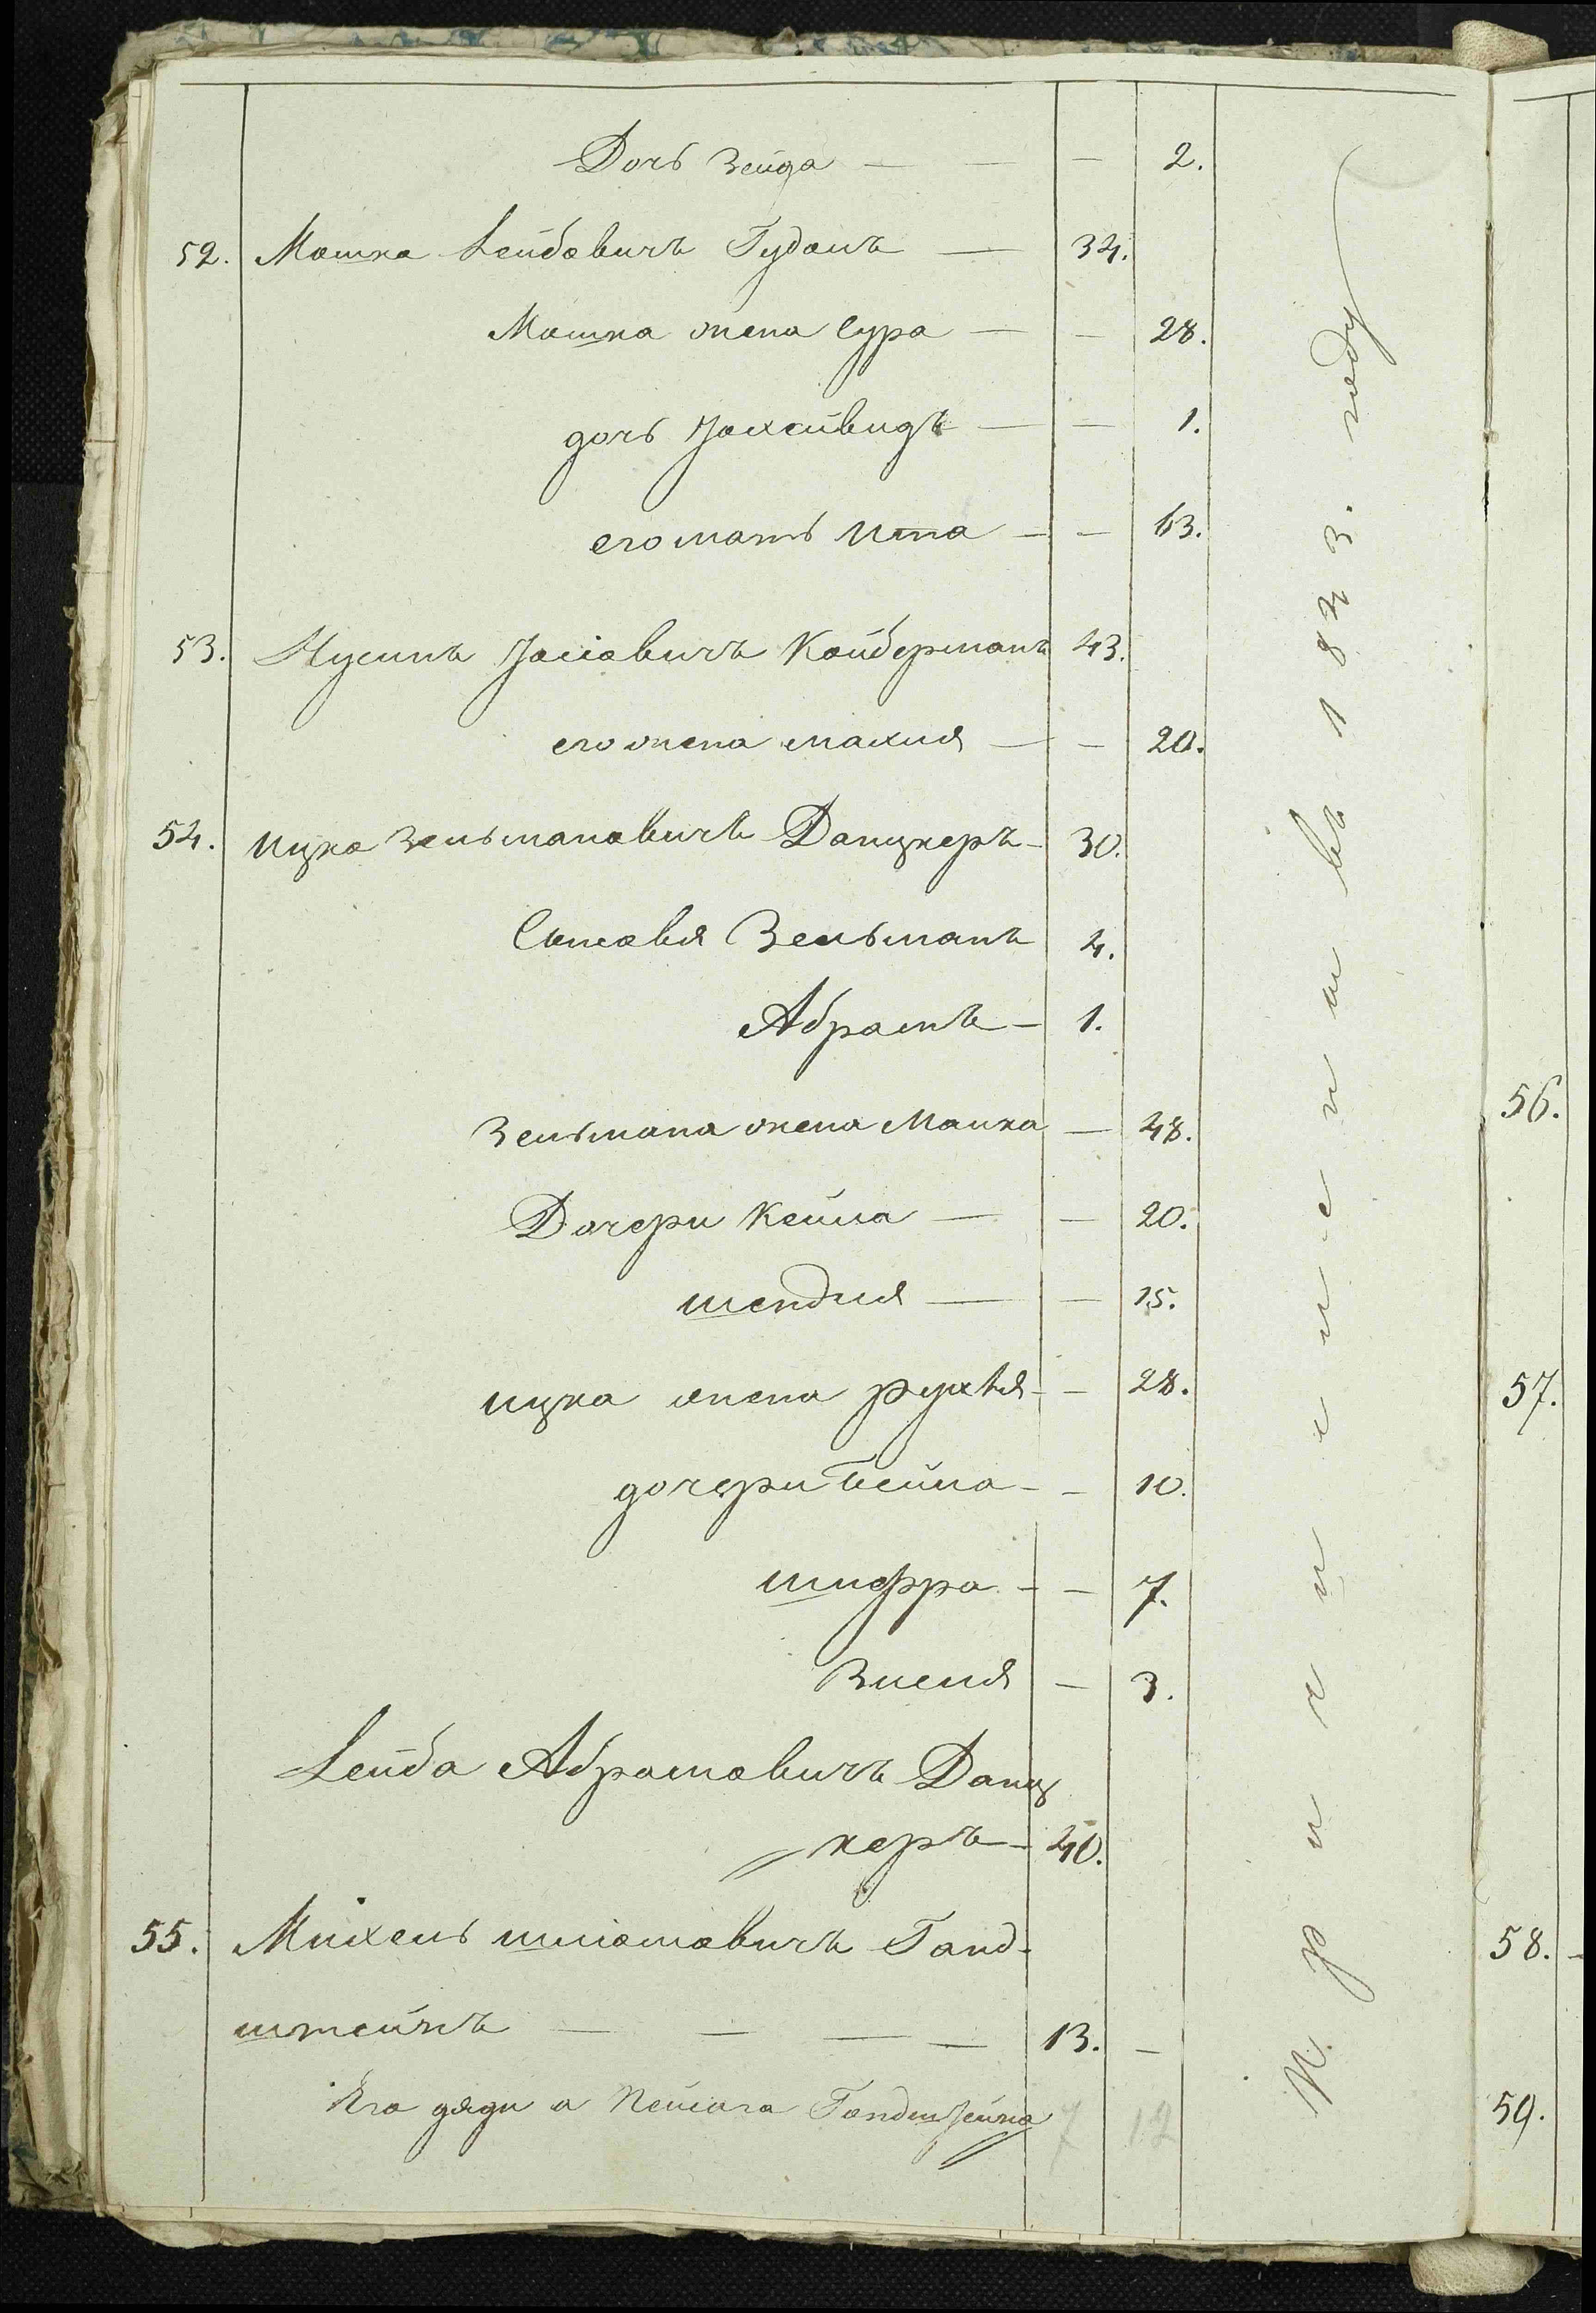 Дочь Зейда — — — 2.
52. Мошка Лейбовичъ Гудацъ — 34.
Мошка жена Сура — — 28.
дочь Іохейвидъ — — 1.
его мать Ита — — 63.
53. Нусинъ Іосіовичъ Койберманъ 43.
его жена Махля — — 20.
54. Ицко Зельмановичъ Данцкеръ — 30.
Сыновья Зельманъ 4.
Абрамъ — 1.
Зельмана жена Малка — 48.
Дочери Кейла — — 20.
Шендля — — 15.
Ицка жена Рухля — — 28.
дочери Бейла — — 10.
Шифра — — 7.
Зисля — 3.
Лейба Абрамовичъ Данц
керъ — 40.
55. Михель Шліомовичъ Ганд-
штейнъ — — — — 13. —
Его дяди а Пейсаха Гандштейна
7 12
Причисленны въ 1843. году
56.
57.
58. -
59.